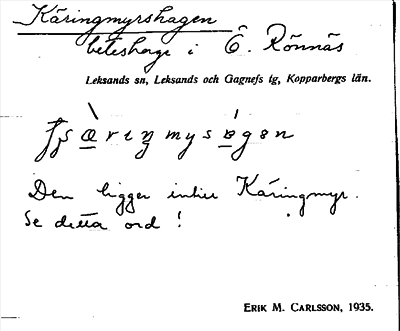 Käringmyrshagen
beteshage i Ö. Rönnäs
Leksands sn, Leksands och Gagnefs tg, Kopparbergs län.
Den ligger intill Käringmyr.
Se detta ord!
ERIK M. CARLSSON, 1935.